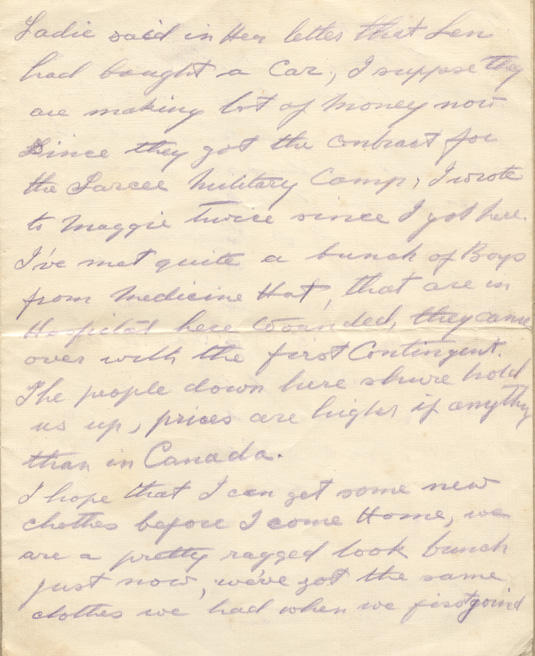 Sadie said in Her letter that Len
had bought a Car, I suppose they
are making lot of Money now
Since they got the contract for
the Sarcee Military Camp, I wrote
to Maggie twice since I got here.
I've met quite a bunch of Boys
from Medicine Hat, that are in
Hospital here Wounded, they came
over with the first Contingent.
The people down here shure hold
us up, prices are higher if anything
than in Canada.
I hope that I can get some new
clothes before I come Home, we
are a pretty ragged look bunch
just now, we've got the same
clothes we had when we first